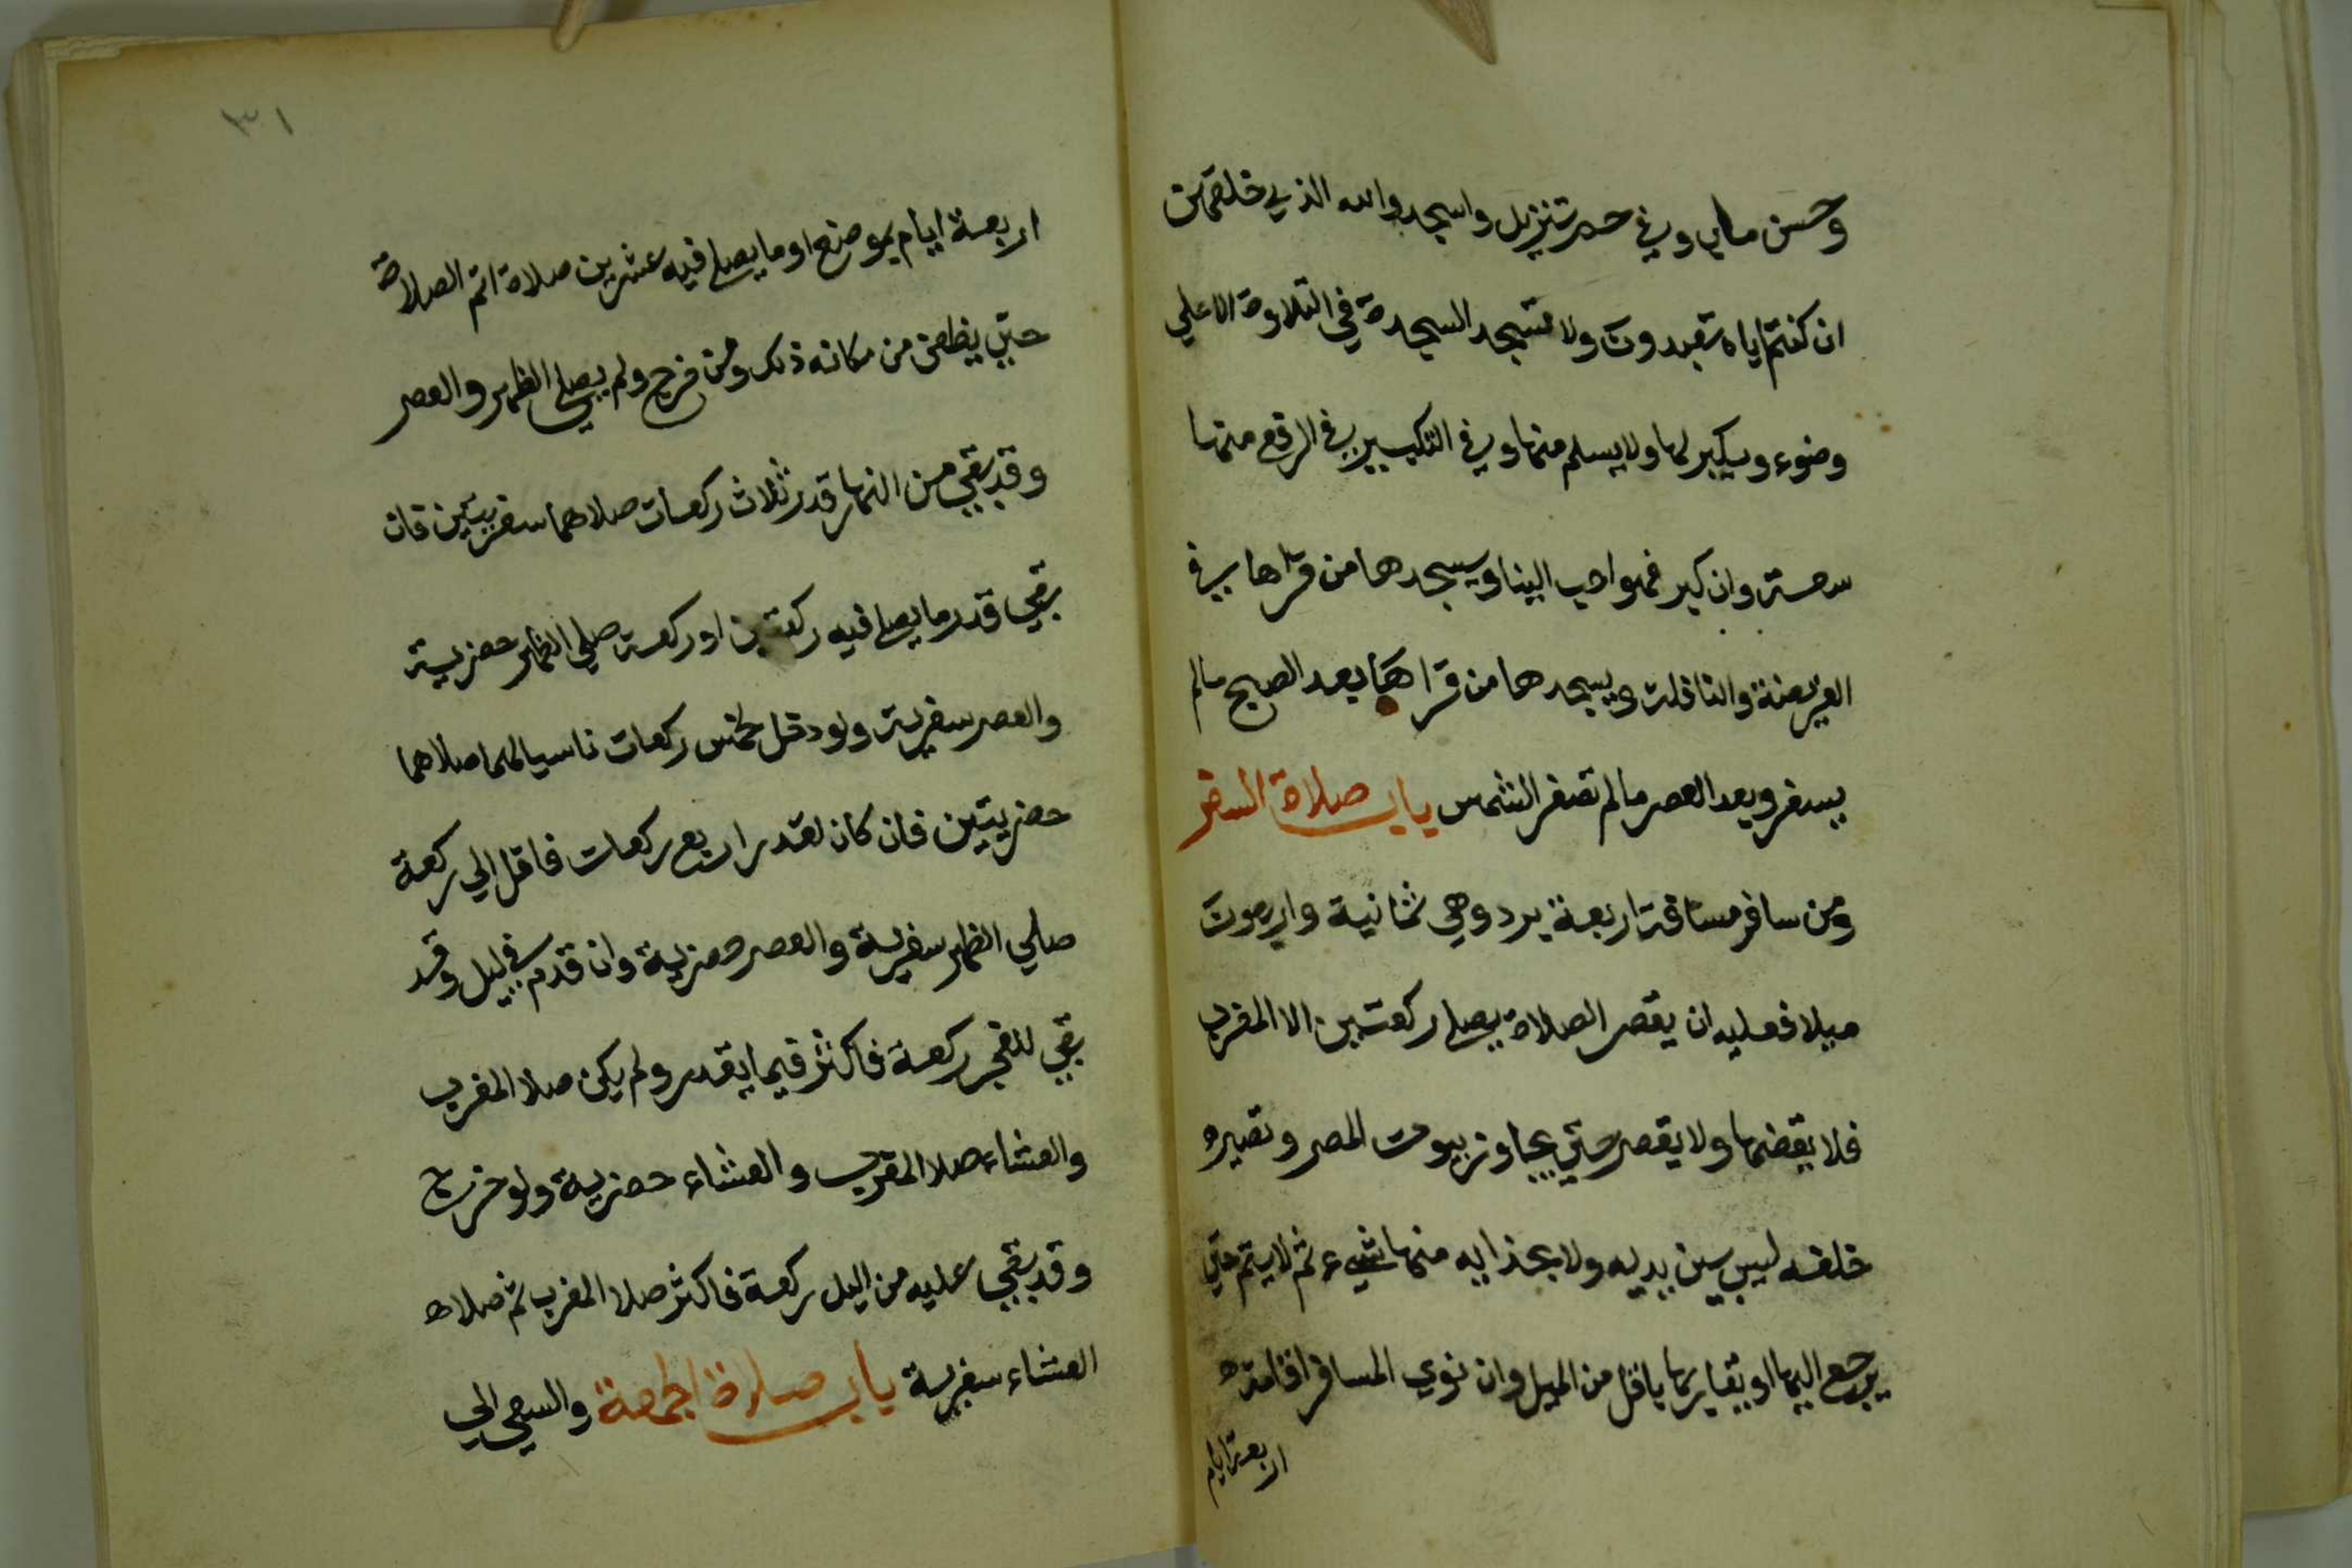 وحسن ماب وفي حم تنزيل واسجدوا لله الذي خلقهن
ان كنتم اياه تعبدون ولا تسجد السجدة في التلاوة الا علي
وضوء ويكبر لها ولا يسلم منها وفي التكبير في الرفع منها
سعة وان كبر فهو احب الينا ويسجدها من قراها في
الفريضة والنافلة ويسجدها من قراها بعد الصبح مالم
يسفر وبعد العصر مالم تصفر الشمس باب صلاة السفر
ومن سافر مسافة اربعة برد وهي ثمانية واربعون
ميلا فعليه ان يقصر الصلاة يصلي ركعتين الا المغرب
فلا يقصرها ولا يقصر حتي يجاوز بيوت المصر وتصير
خلفه ليس بين يديه ولا بحذايه منها شيء ثم لا يتم حتي
يرجع اليها او يقاربها باقل من الميل وان نوي المسافر اقامة
اربعة ايام
٣١
اربعة ايام بموضع او ما يصلي فيه عشرين صلاة اتم الصلاة
حتي يظعن من مكانه ذلك ومن خرج ولم يصلي الظهر والعصر
وقد بقي من النهار قدر ثلاث ركعات صلاهما سفريتين فان
بقي قدر ما يصلي فيه ركعتين او ركعة صلي الظهر حضرية
والعصر سفرية ولو دخل لخمس ركعات ناسيا لهما صلاهما
حضريتين فان كان لقدر اربع ركعات فاقل الي ركعة
صلي الظهر سفرية والعصر حضرية وان قدم في ليل وقد
بقي للفجر ركعة فاكثر فيما يقدر ولم يكن صلا المغرب
والعشاء صلا المغرب والعشاء حضرية ولو خرج
وقد بقي عليه من اليل ركعة فاكثر صلا المغرب ثم صلاه
العشاء سفرية باب صلاة الجمعة والسعي الي